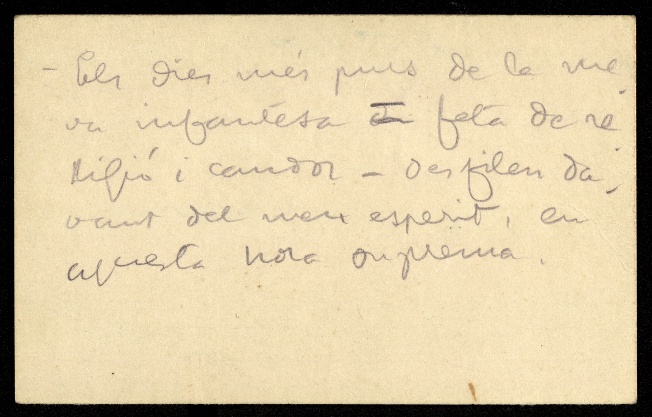 - Els dies més purs de la me-
va infantesa feta de re-
ligió i candor - desfilen da-
vant del meu esperit, en
aquesta hora suprema.